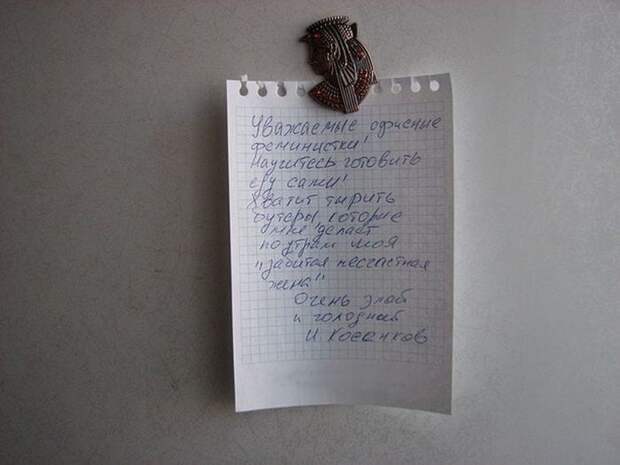 Уважаемые офисные
феминистки!
Научитесь готовить
еду сами!
Хватит тырить
бутеры, которые
мне делает
по утрам моя
"забитая несчастная
жена"
Очень злой
и голодный
И Косанков